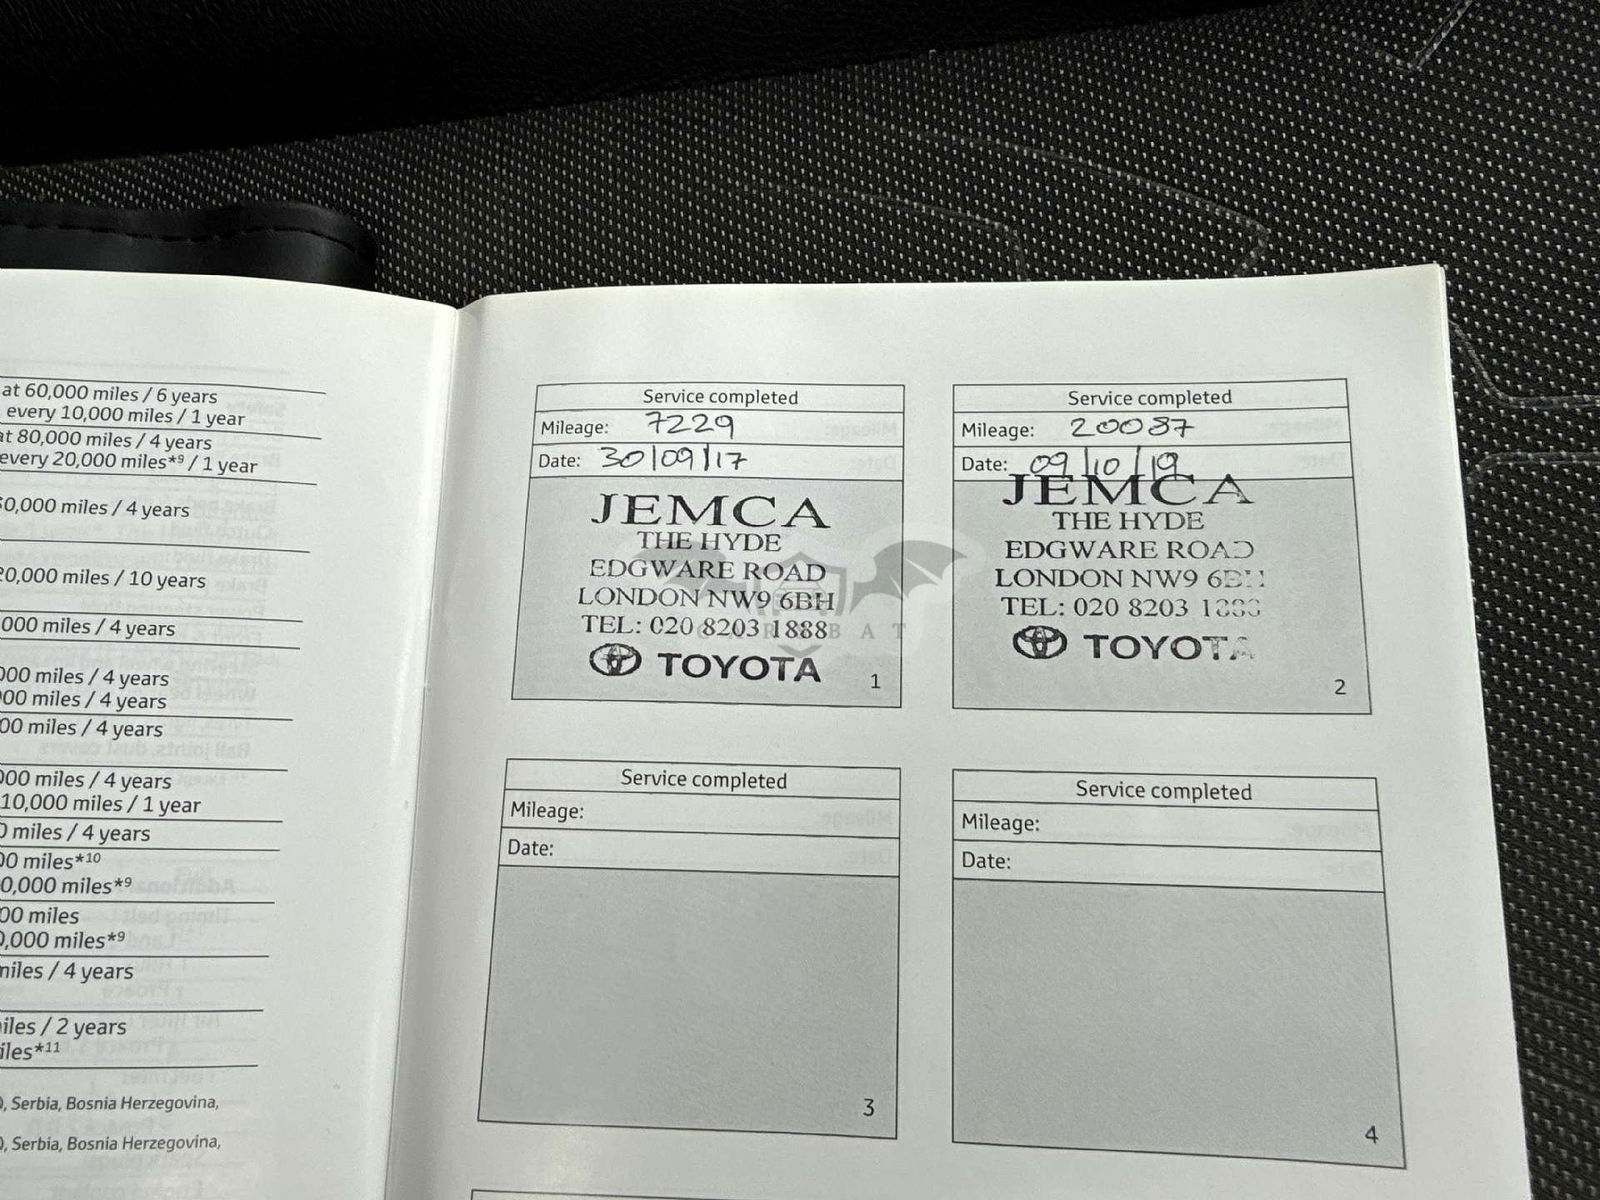 at 60,000 miles / 6 years
every 10,000 miles / 1 year
at 80,000 miles / 4 years
every 20,000 miles*9 / 1 year
0,000 miles / 4 years
0,000 miles / 10 years
000 miles / 4 years
000 miles / 4 years
00 miles / 4 years
00 miles / 4 years
000 miles / 4 years
10,000 miles / 1 year
0 miles / 4 years
00 miles*10
0,000 miles*9
00 miles
0,000 miles*9
miles / 4 years
miles / 2 years
iles*11
), Serbia, Bosnia Herzegovina,
), Serbia, Bosnia Herzegovina,
Service completed
Mileage: 7229
Date: 30/09/17
JEMCA
THE HYDE
EDGWARE ROAD
LONDON NW9 6BH
TEL: 020 8203 1888
TOYOTA
1
Service completed
Mileage: 20087
Date: 09/10/19
JEMCA
THE HYDE
EDGWARE ROAD
LONDON NW9 6BH
TEL: 020 8203 1888
TOYOTA
2
Service completed
Mileage:
Date:
3
Service completed
Mileage:
Date:
4